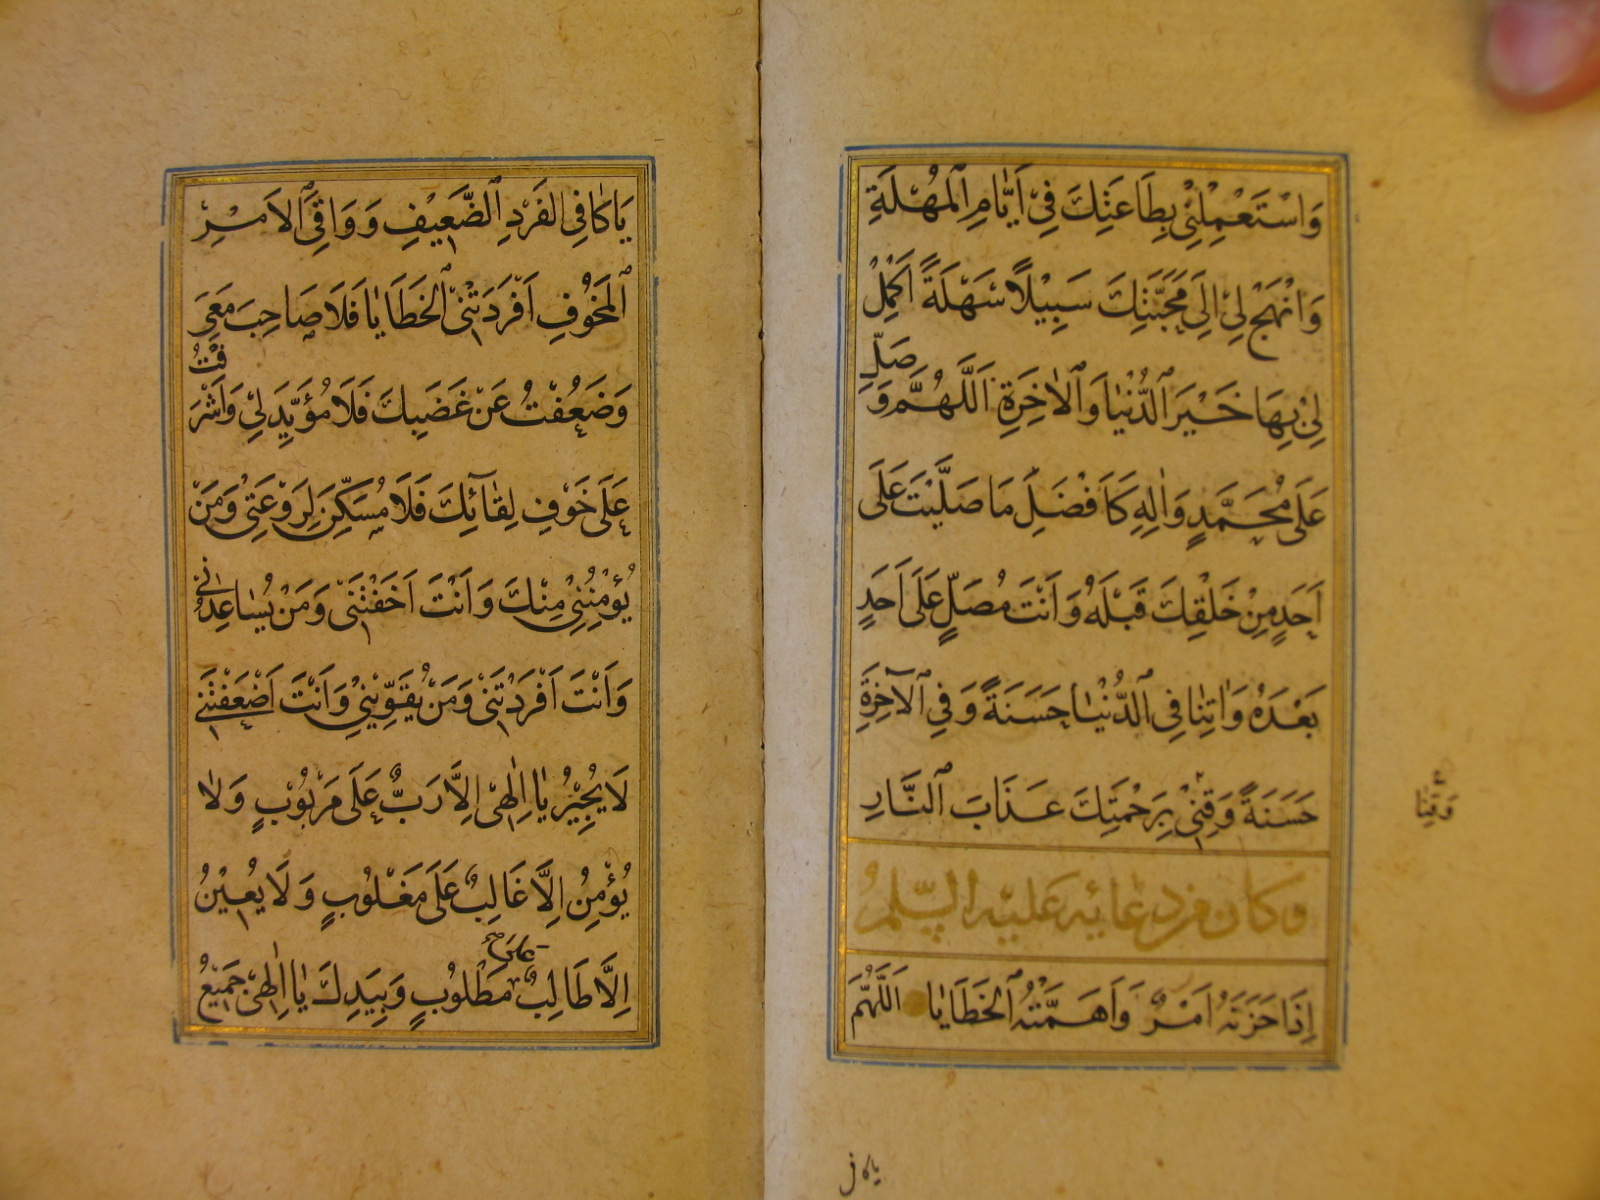 وَاسْتَعْمِلْنِيْ بِطَاعَتِكَ فِيْ اَيَّامِ الْمُهْلَةِ
وَانْهَجْ لِيْ اِلَى مَحَبَّتِكَ سَبِيْلًا سَهْلَةً اَكْمِلْ
لِيْ بِهَا خَيْرَ الدُّنْيَا وَالْاٰخِرَةِ اَللّٰهُمَّ وَصَلِّ
عَلَى مُحَمَّدٍ وَاٰلِهِ كَاَفْضَلِ مَا صَلَّيْتَ عَلَى
اَحَدٍ مِنْ خَلْقِكَ قَبْلَهُ وَاَنْتَ مُصَلٍّ عَلَى اَحَدٍ
بَعْدَهُ وَاٰتِنَا فِي الدُّنْيَا حَسَنَةً وَفِي الْاٰخِرَةِ
حَسَنَةً وَقِنِيْ بِرَحْمَتِكَ عَذَابَ النَّارِ
وَقِنَا
وكان من دعائه عليه السلم
اِذَا حَزَنَهُ اَمْرٌ وَاَهَمَّتْهُ الْخَطَايَا اَللّٰهُمَّ
يا كافي
يَا كَافِيَ الْفَرْدِ الضَّعِيْفِ وَوَاقِيَ الْاَمْرِ
الْمَخُوْفِ اَفْرَدَتْنِي الْخَطَايَا فَلَا صَاحِبَ مَعِيَ
وَضَعُفْتُ عَنْ غَضَبِكَ فَلَا مُؤَيِّدَ لِيْ وَاَشْرَفْتُ
عَلَى خَوْفِ لِقَائِكَ فَلَا مُسَكِّنَ لِرَوْعَتِيْ وَمَنْ
يُؤْمِنُنِيْ مِنْكَ وَاَنْتَ اَخَفْتَنِيْ وَمَنْ يُسَاعِدُنِيْ
وَاَنْتَ اَفْرَدْتَنِيْ وَمَنْ يُقَوِّيْنِيْ وَاَنْتَ اَضْعَفْتَنِيْ
لَا يُجِيْرُ يَا اِلٰهِيْ اِلَّا رَبٌّ عَلَى مَرْبُوْبٍ وَلَا
يُؤْمِنُ اِلَّا غَالِبٌ عَلَى مَغْلُوْبٍ وَلَا يُعِيْنُ
اِلَّا طَالِبٌ عَلَى مَطْلُوْبٍ وَبِيَدِكَ يَا اِلٰهِيْ جَمِيْعُ